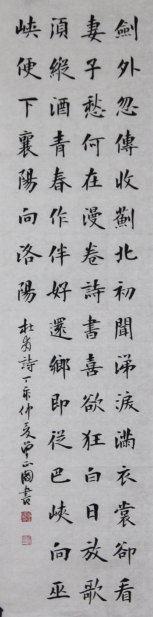 劍外忽傳收薊北初聞涕淚滿衣裳卻看
妻子愁何在漫卷詩書喜欲狂白日放歌
須縱酒青春作伴好還鄉即從巴峽向巫
峽便下襄陽向洛陽 杜甫詩丁亥仲夏 正國書